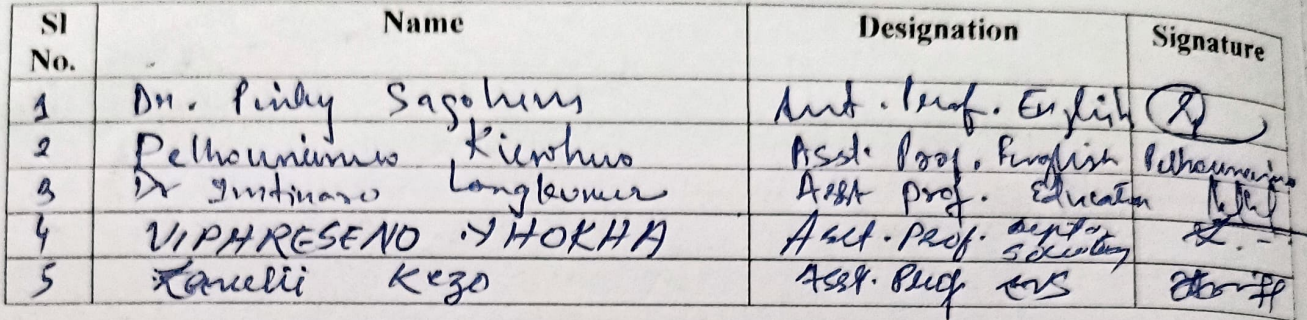 Sl No. Name Designation Signature
1 Dr. Pinky Sagolsem Asst. Prof. English
2 Kierhuo Asst. Prof. English
3 Dr Imtinaro Longkumer Asst prof. Education
4 VIPHRESENO YHOKHA Asst. Prof. Dept of Sociology
5 Kezo Asst. Prof EVS